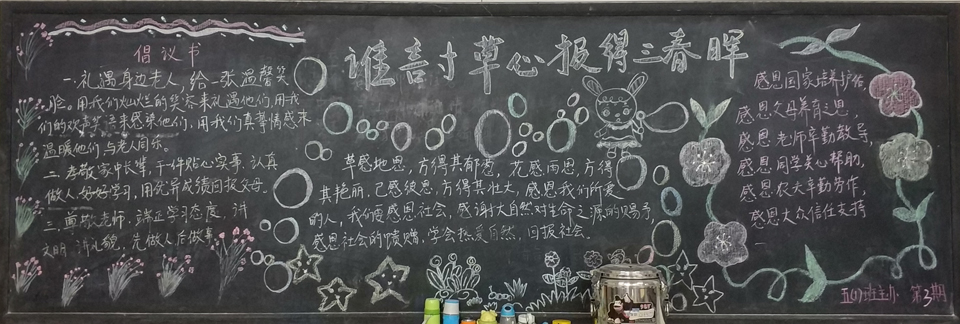 谁言寸草心报得三春晖
倡议书
一、礼遇身边老人,给一张温馨笑
脸。用我们灿烂的笑容来礼遇他们,用我
们的欢声笑语来感染他们,用我们真挚情感来
温暖他们与老人同乐。
二、孝敬家中长辈,干件贴心家事,认真
做人好好学习,用优异成绩回报父母。
三、尊敬老师,端正学习态度,讲
文明 讲礼貌,先做人后做事
草感地恩,方得其郁葱,花感雨恩,方得
其艳丽,己感彼恩,方得其壮大,感恩我们所爱
的人,我们需感恩社会,感谢大自然对生命之源的赐予,
感恩社会的馈赠,学会热爱自然,回报社会。
感恩国家培养护佑,
感恩父母养育之恩,
感恩老师辛勤教导,
感恩同学关心帮助,
感恩农夫辛勤劳作,
感恩大众信任支持
五(1)班主办 第3期